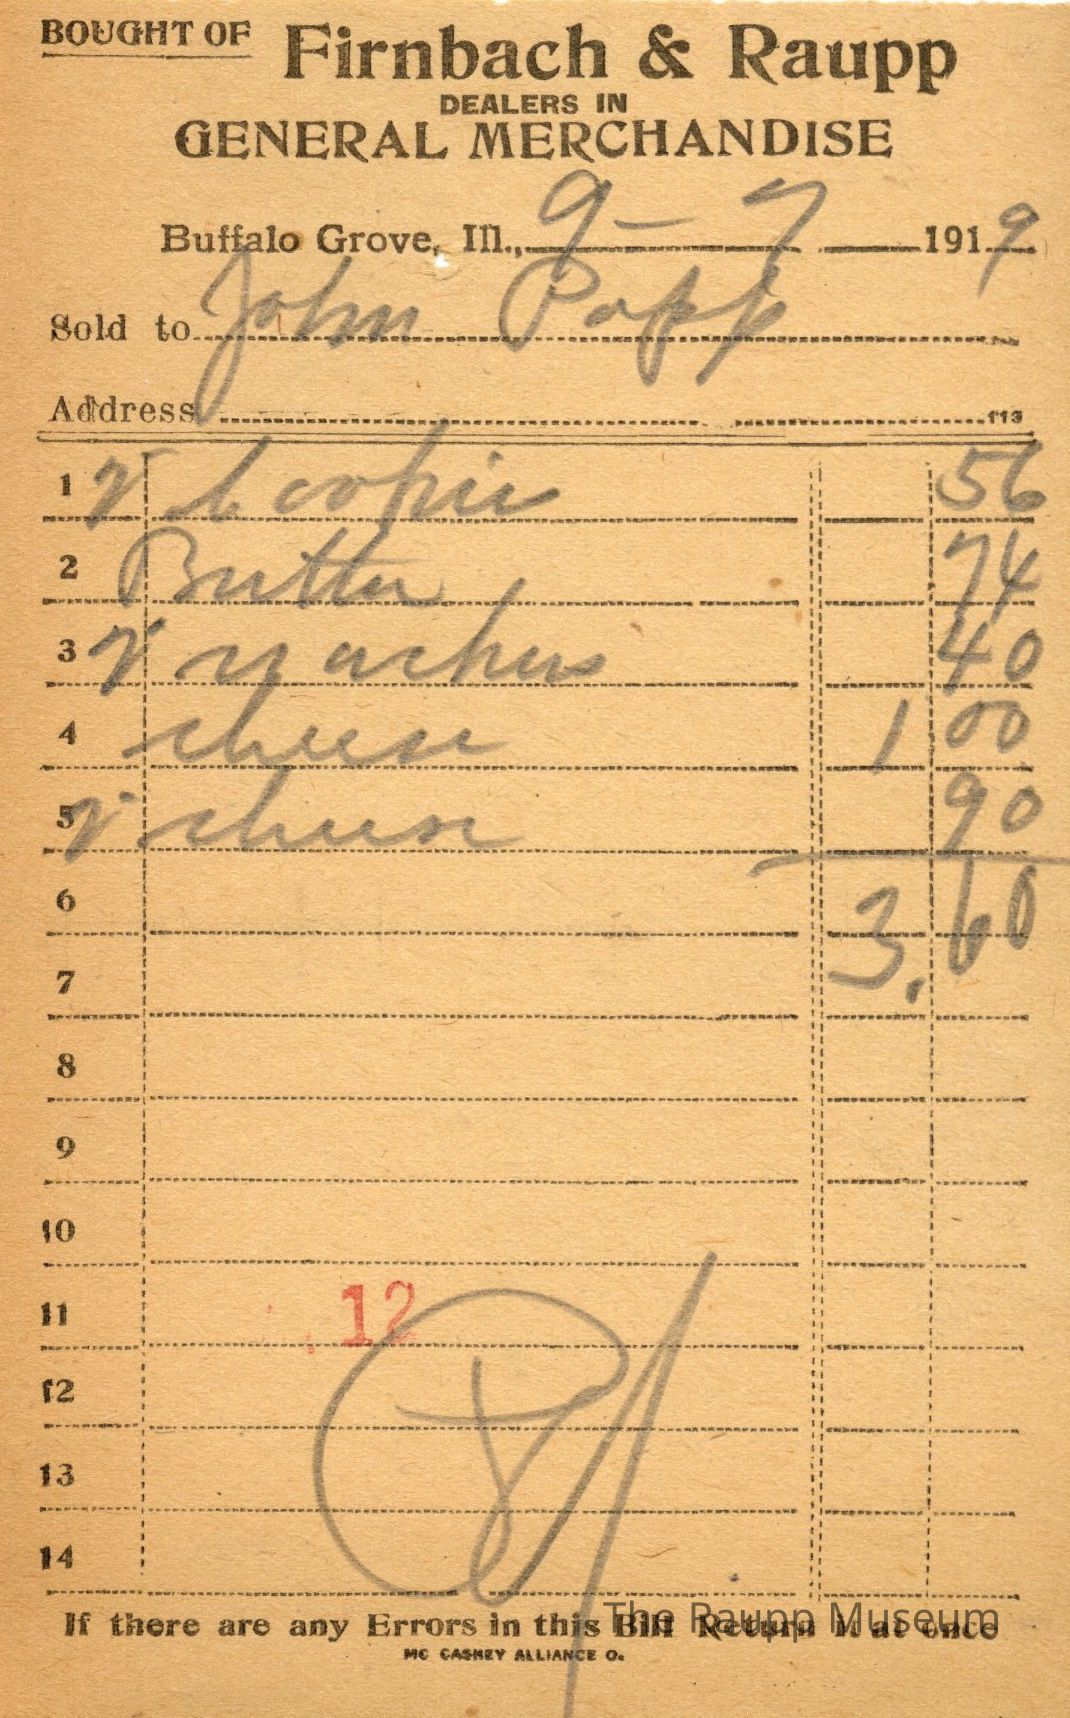 BOUGHT OF Firnbach & Raupp
DEALERS IN
GENERAL MERCHANDISE
Buffalo Grove, Ill., 9 - 7 1919
Sold to John Popp
Address 113
1 56
2 Butter 74
3 40
4 cheese 1 00
5 cheese 90
6 3.60
7
8
9
10
11 12
12
13
14
If there are any Errors in this Bill Return it at once
The Raupp Museum
MC CASKEY ALLIANCE O.